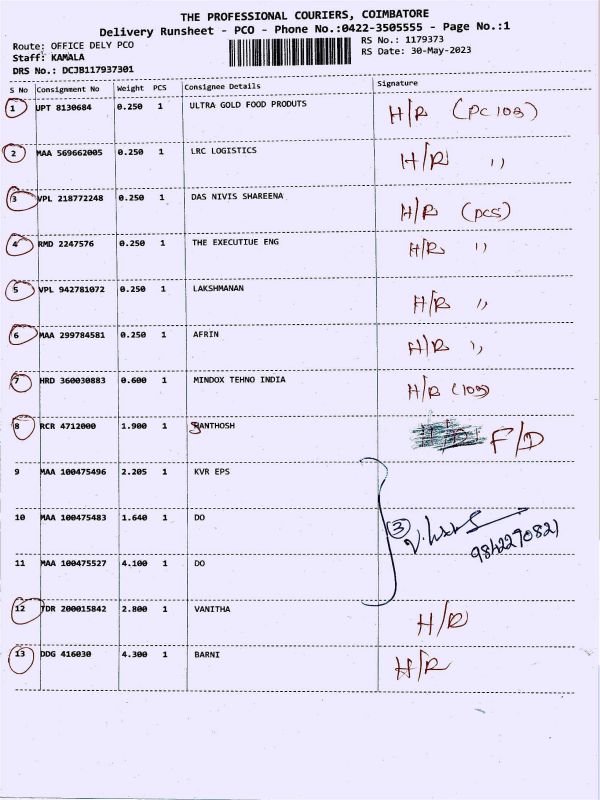 THE PROFESSIONAL COURIERS, COIMBATORE
Delivery Runsheet - PCO - Phone No.:0422-3505555 - Page No.:1
Route: OFFICE DELY PCO
RS No.: 1179373
Staff: KAMALA
RS Date: 30-May-2023
DRS No.: DCJB117937301
S No Consignment No Weight PCS Consignee Details Signature
1 UPT 8130684 0.250 1 ULTRA GOLD FOOD PRODUTS H/R (PC103)
2 MAA 569662005 0.250 1 LRC LOGISTICS H/R ,,
3 VPL 218772248 0.250 1 DAS NIVIS SHAREENA H/R (PCS)
4 RMD 2247576 0.250 1 THE EXECUTIUE ENG H/R ,,
5 VPL 942781072 0.250 1 LAKSHMANAN H/R ,,
6 MAA 299784581 0.250 1 AFRIN H/R ,,
7 HRD 360030883 0.600 1 MINDOX TEHNO INDIA H/R (103)
8 RCR 4712000 1.900 1 SANTHOSH F/D
9 MAA 100475496 2.205 1 KVR EPS
10 MAA 100475483 1.640 1 DO 3
9842270821
11 MAA 100475527 4.100 1 DO
12 TDR 200015842 2.800 1 VANITHA H/R
13 DDG 416030 4.300 1 BARNI H/R